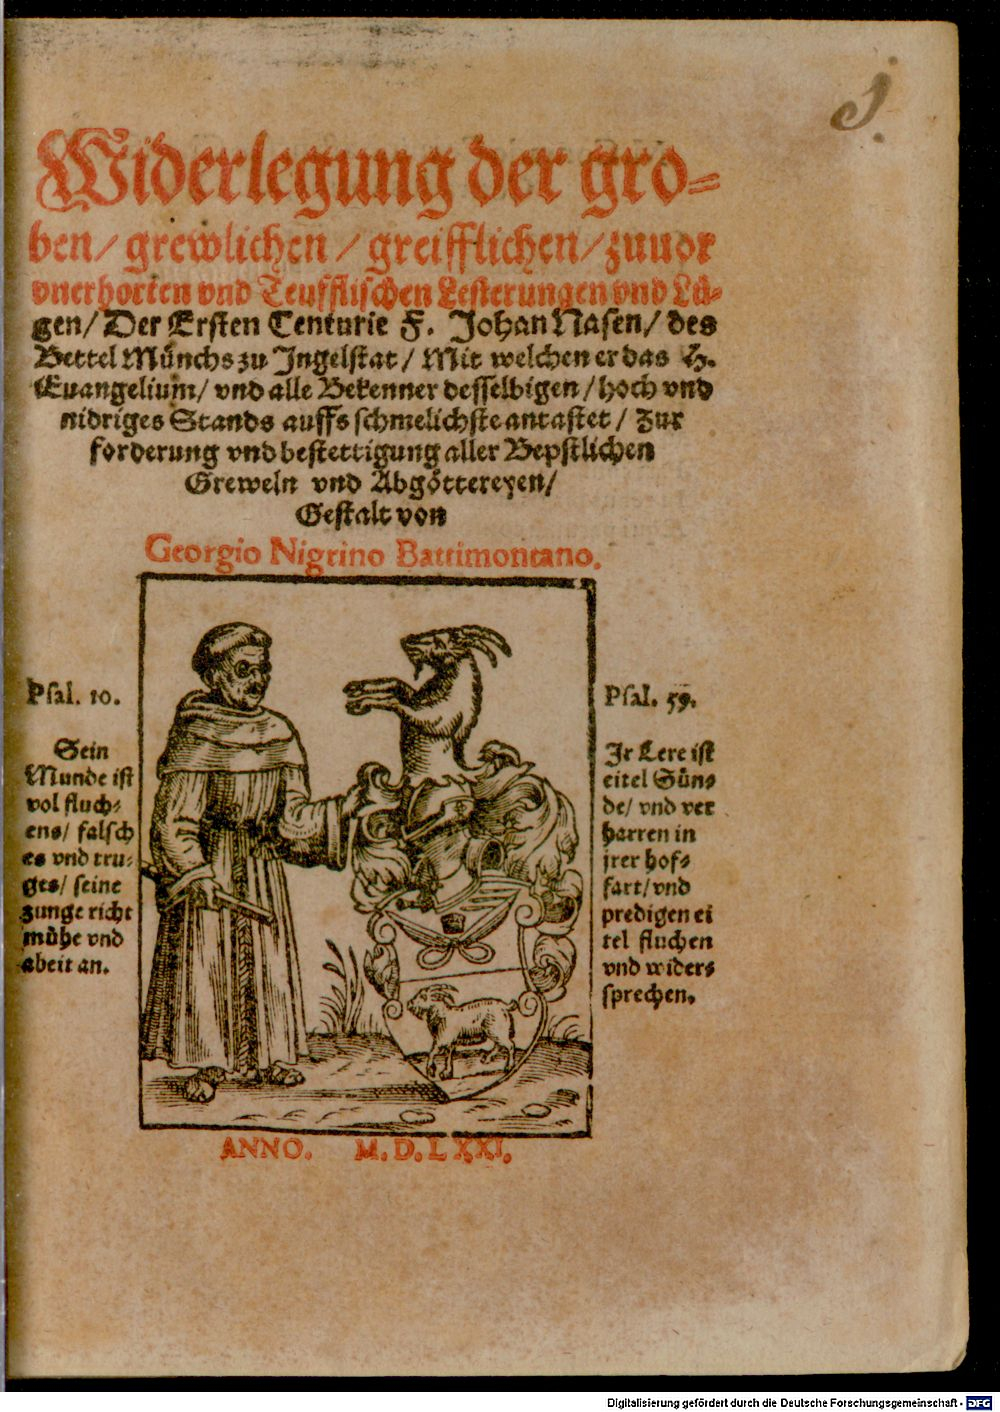 1.
Widerlegung der gro-
ben/ grewlichen/ greifflichen/ zuuor
vnerhorten vnd Teufflischen Lesterungen vnd Lü-
gen/ Der Ersten Centurie F. Johan Nasen/ des
Bettel Münchs zu Ingelstat/ Mit welchen er das H.
Euangelium/ vnd alle Bekenner desselbigen/ hoch vnd
nidriges Stands auffs schmelichste antastet/ zur
forderung vnd bestettigung aller Bepstlichen
Greweln vnd Abgöttereyen/
Gestalt von
Georgio Nigrino Battimontano.
Psal. 10.
Sein
Munde ist
vol fluch-
ens/ falsch
es vnd tru-
ges/ seine
zunge richt
mühe vnd
abeit an.
Psal. 59.
Ir Lere ist
eitel Sün-
de/ vnd ver
harren in
jrer hof-
fart/ vnd
predigen ei
tel fluchen
vnd widers
sprechen.
ANNO. M. D. LXXI.
Digitalisierung gefördert durch die Deutsche Forschungsgemeinschaft - DFG